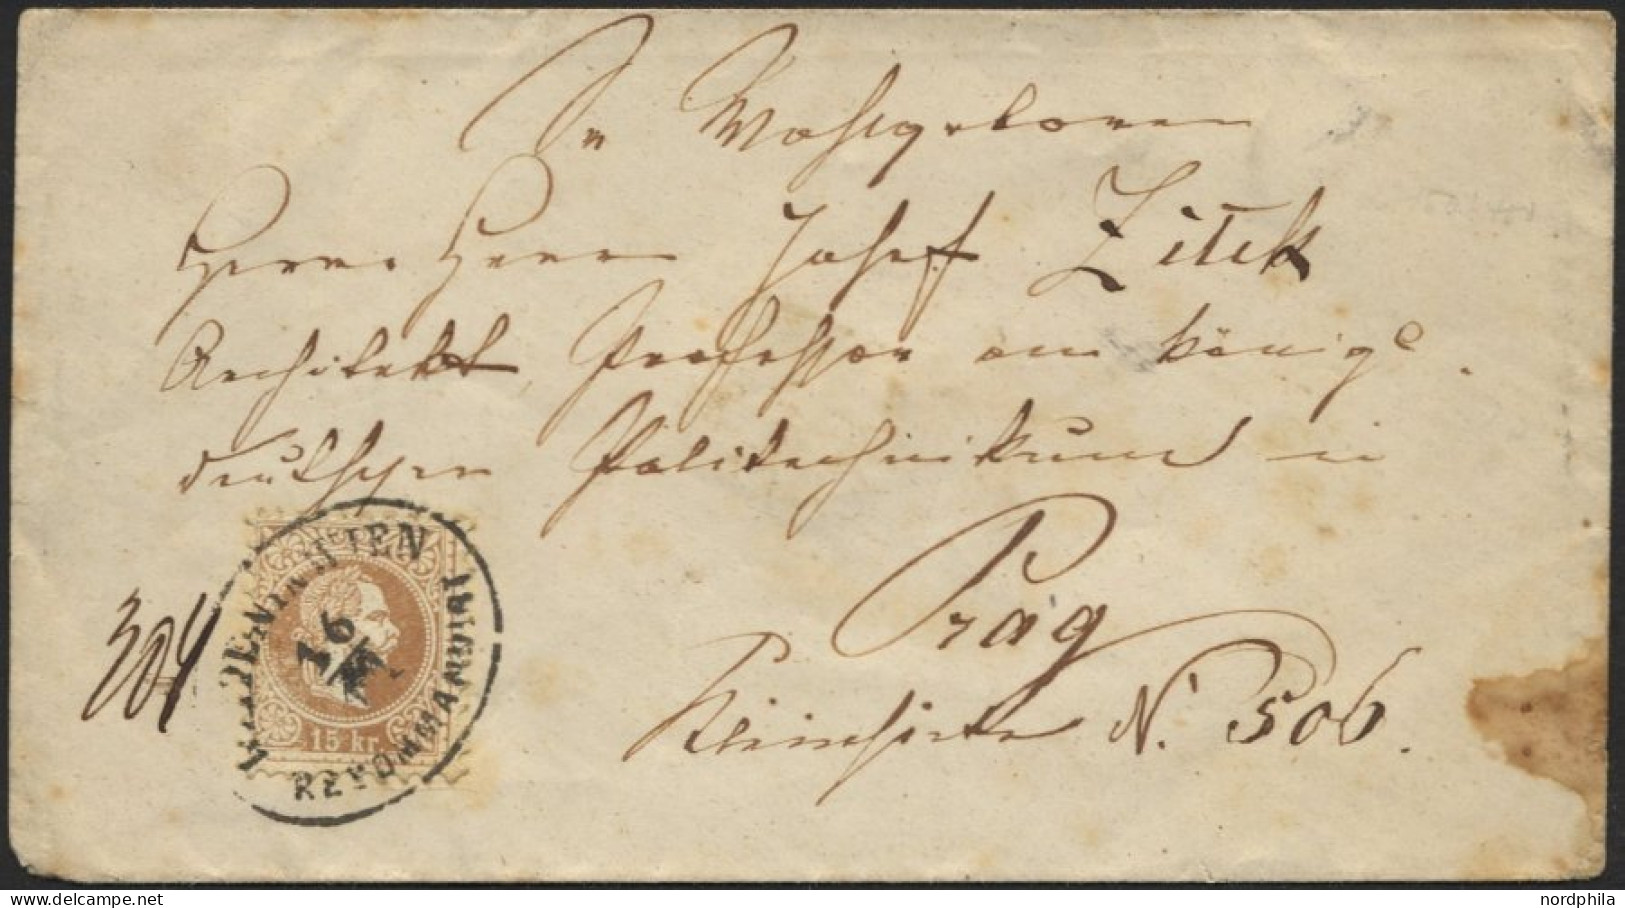 Sr Wohlgeboren
Herrn Herrn Josef Zitek
Architekt, Professor am königl.
deutschen Politechnikum in
Prag
Kleinseite N. 506.
304
RECOMMANDIRT
16
15 kr.
nordphila